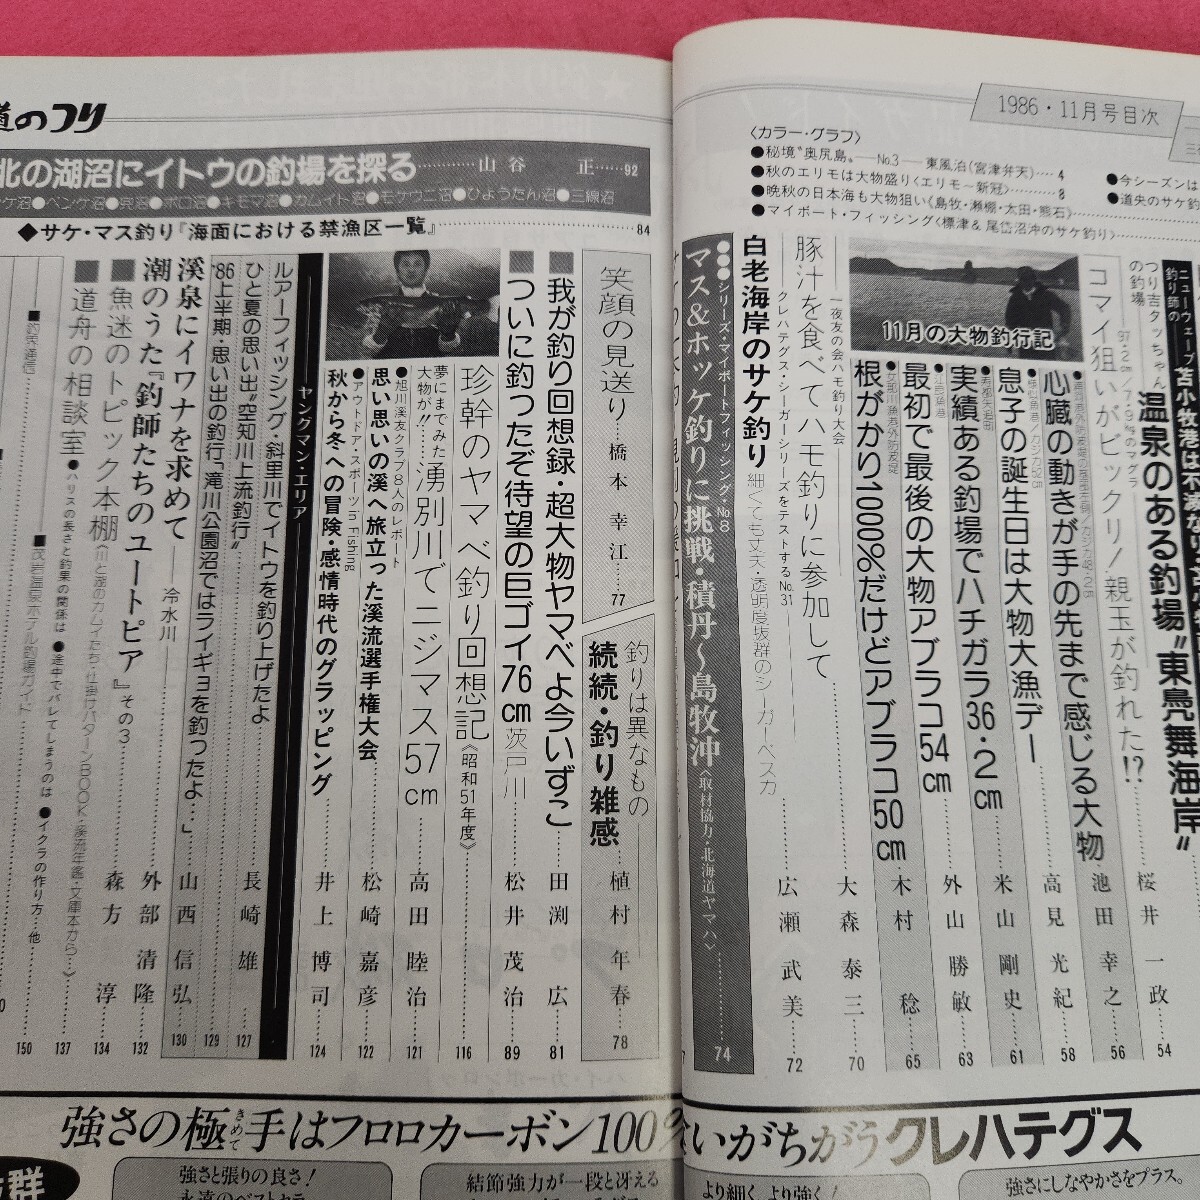 1986・11月号目次
〈カラー・グラフ〉
●秘境〝奥尻島〟―No.3―東風泊(宮津弁天)……4
●秋のエリモは大物盛り〈エリモ〜新冠〉……8
●晩秋の日本海も大物狙い〈島牧・瀬棚・太田・熊石〉
●マイボート・フィッシング〈標津&尾岱沼沖のサケ釣り〉
●今シーズンは
●道央のサケ釣
ニューウェーブ
釣り師の
つり吉タッちゃん
の釣場
温泉のある釣場〝東鳥舞海岸〟
桜井一政……54
コマイ狙いがビックリ!親玉が釣れた!?
池田幸之……56
11月の大物釣行記
心臓の動きが手の先まで感じる大物
高見光紀……58
息子の誕生日は大物大漁デー
米山剛史……61
実績ある釣場でハチガラ36・2cm
外山勝敏……63
最初で最後の大物アブラコ54cm
根がかり1000%だけどアブラコ50cm
木村稔……65
一夜友の会ハモ釣り大会
豚汁を食べてハモ釣りに参加して
大森泰三……70
クレハテグス・シーガーシリーズをテストするNo.31
白老海岸のサケ釣り
細くても丈夫・透明度抜群のシーガーベスカ
広瀬武美……72
●●●シリーズ・マイボートフィッシング・No.8
マス&ホッケ釣りに挑戦・積丹〜島牧沖
〈取材協力・北海道ヤマハ〉……74
道のつり
北の湖沼にイトウの釣場を探る……山谷 正……92
●ペンケ沼●ポロ沼●キモマ沼●カムイト沼●モケウニ沼●ひょうたん沼●三線沼
◆サケ・マス釣り『海面における禁漁区一覧』……84
笑顔の見送り―橋本幸江……77
釣りは異なもの
続続・釣り雑感
植村年春……78
■我が釣り回想録・超大物ヤマベよ今いずこ
田渕広……81
■ついに釣ったぞ待望の巨ゴイ76cm茨戸川
松井茂治……89
珍幹のヤマベ釣り回想記《昭和51年度》……116
夢にまでみた
大物が!!
湧別川でニジマス57cm
高田睦治……121
●旭川渓友クラブ8人のレポート
思い思いの渓へ旅立った渓流選手権大会
松崎嘉彦……122
●アウトドア・スポーツ in Fishing
秋から冬への冒険・感情時代のグラッピング
井上博司……124
ヤングマン・エリア
ルアーフィッシング・斜里川でイトウを釣り上げたよ
ひと夏の思い出〝空知川上流釣行〟
長崎雄……127
'86上半期・思い出の釣行「滝川公園沼ではライギョを釣ったよ…」……129
渓泉にイワナを求めて―冷水川
山西信弘……130
潮のうた『釣師たちのユートピア』その3
外部清隆……132
■魚迷のトピック本棚
《川と湖のカムイたち・仕掛けパターンBOOK・渓流年鑑・文庫本から…》
森方淳……134
■道舟の相談室
●ハリスの長さと釣果の関係は●途中でバレてしまうのは●イクラの作り方…他……137
■釣界通信……150
強さの極手はフロロカーボン100%
きめて
いがちがうクレハテグス
強さと張りの良さ!
結節強力が一段と冴える
より細く、より強く!
強さにしなやかさをプラス。